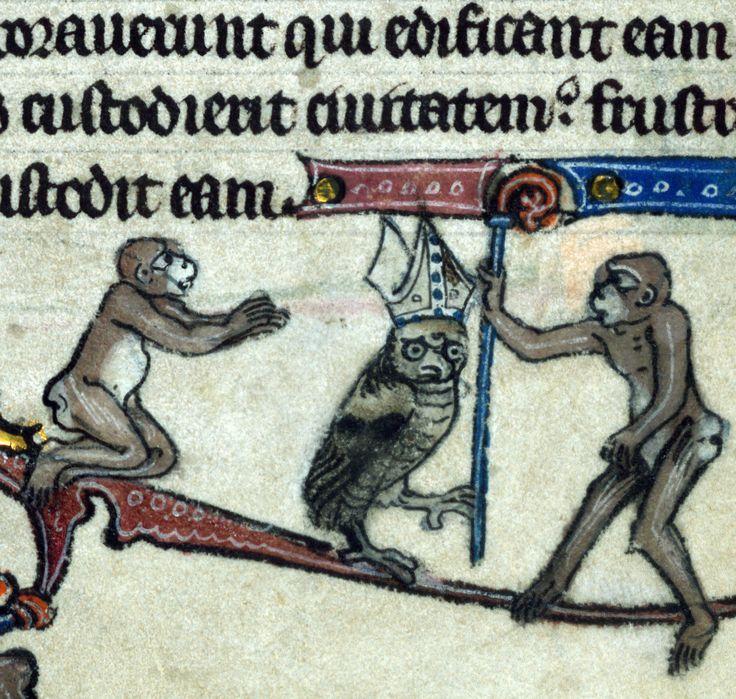 orauerunt qui edificant eam
s custodierit ciuitatem: frustr
ustodit eam.